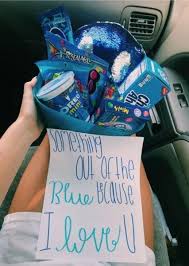 Something
out of the
Blue Because
I love U